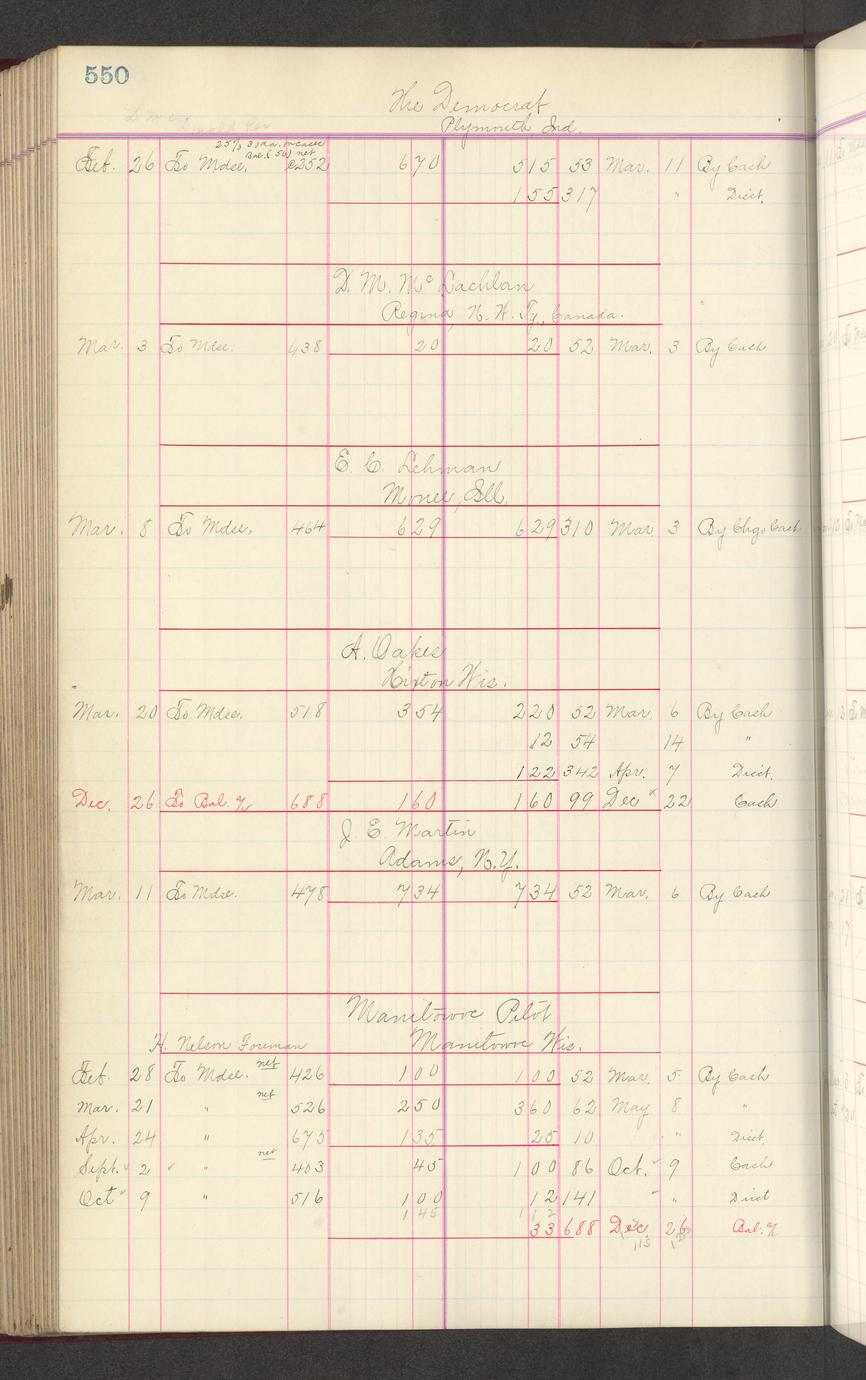 550
The Democrat
Plymouth Ind.
25% 30 da. on cases
Bal. (56) net
Feb. 26 To Mdse. 252 670 515 53 Mar. 11 By Cash
155 317 " Disct.
D. M. McLachlan
Regina, N. W. Ty., Canada.
Mar. 3 To Mdse. 438 20 20 52 Mar. 3 By Cash
E. C. Lehman
Monee, Ill.
Mar. 8 To Mdse. 464 629 629 310 Mar. 3 By Chgs Cash
A. Oakes
Hixton Wis.
Mar. 20 To Mdse. 518 354 220 52 Mar. 6 By Cash
12 54 14 "
122 342 Apr. 7 Disct.
Dec. 26 To Bal. % 688 160 160 99 Dec x 22 Cash
J. E. Martin
Adams, N.Y.
Mar. 11 To Mdse. 478 734 734 52 Mar. 6 By Cash
Manitowoc Pilot
H. Nelson Foreman Manitowoc Wis.
Feb. 28 To Mdse. net 426 100 100 52 Mar. 5 By Cash
Mar. 21 " net 526 250 360 62 May 8 "
Apr. 24 " 675 135 25 10 " " Disct.
Sept. 2 " net 403 45 100 86 Oct. 9 Cash
Oct 9 " 516 100 12 141 " " Disct
145 112
33 688 Dec 26 Bal. %